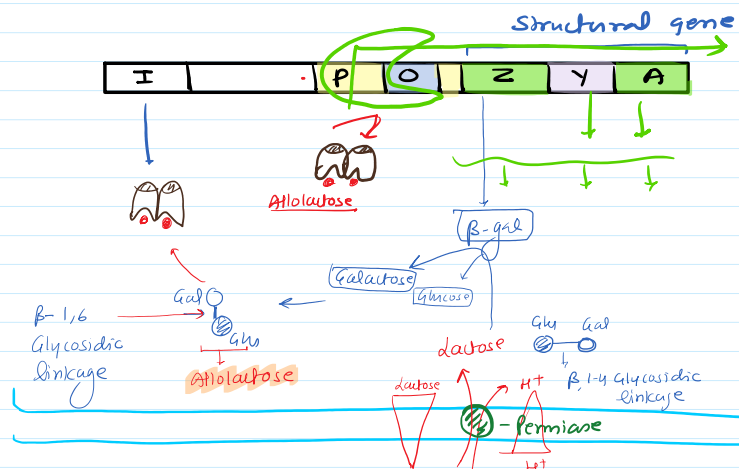 Structural gene
I P O Z Y A
Allolactose
β-gal
Galactose
Glucose
Gal
β-1,6
Glycosidic
linkage
Glu
Allolactose
Lactose
Glu Gal
β,1-4 Glycosidic
linkage
Lactose
H+
-Permiase
H+